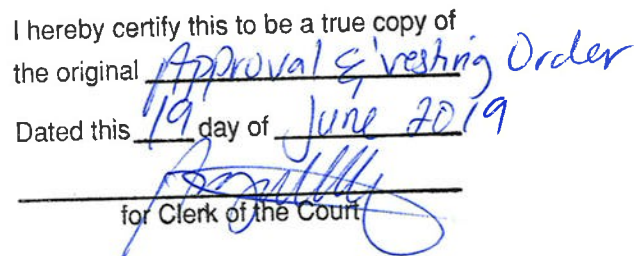 I hereby certify this to be a true copy of
the original Approval & Vesting Order
Dated this 19 day of June 2019
for Clerk of the Court